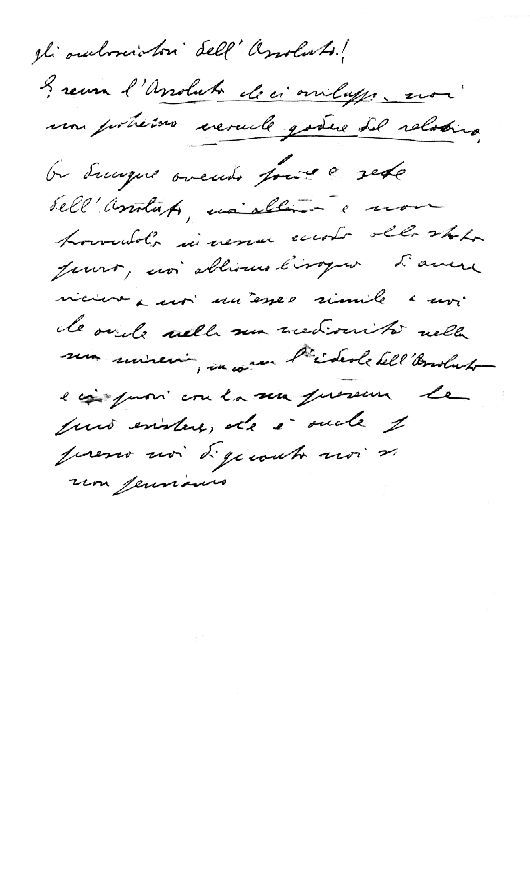 gli ambasciatori dell'Assoluto!
E senza l'Assoluto che ci avviluppi, noi
non potremo neanche godere del relativo.
Or dunque avendo fame e sete
dell'Assoluto, e non
trovandolo in nessun modo allo stato
puro, noi abbiamo bisogno di avere
vicino a noi un essere simile a noi
che anche nella sua mediocrità nella
sua miseria, l'ideale dell'Assoluto
e ci provi con la sua presenza che
può esistere, che è anche
presso noi di quanto noi
non pensiamo